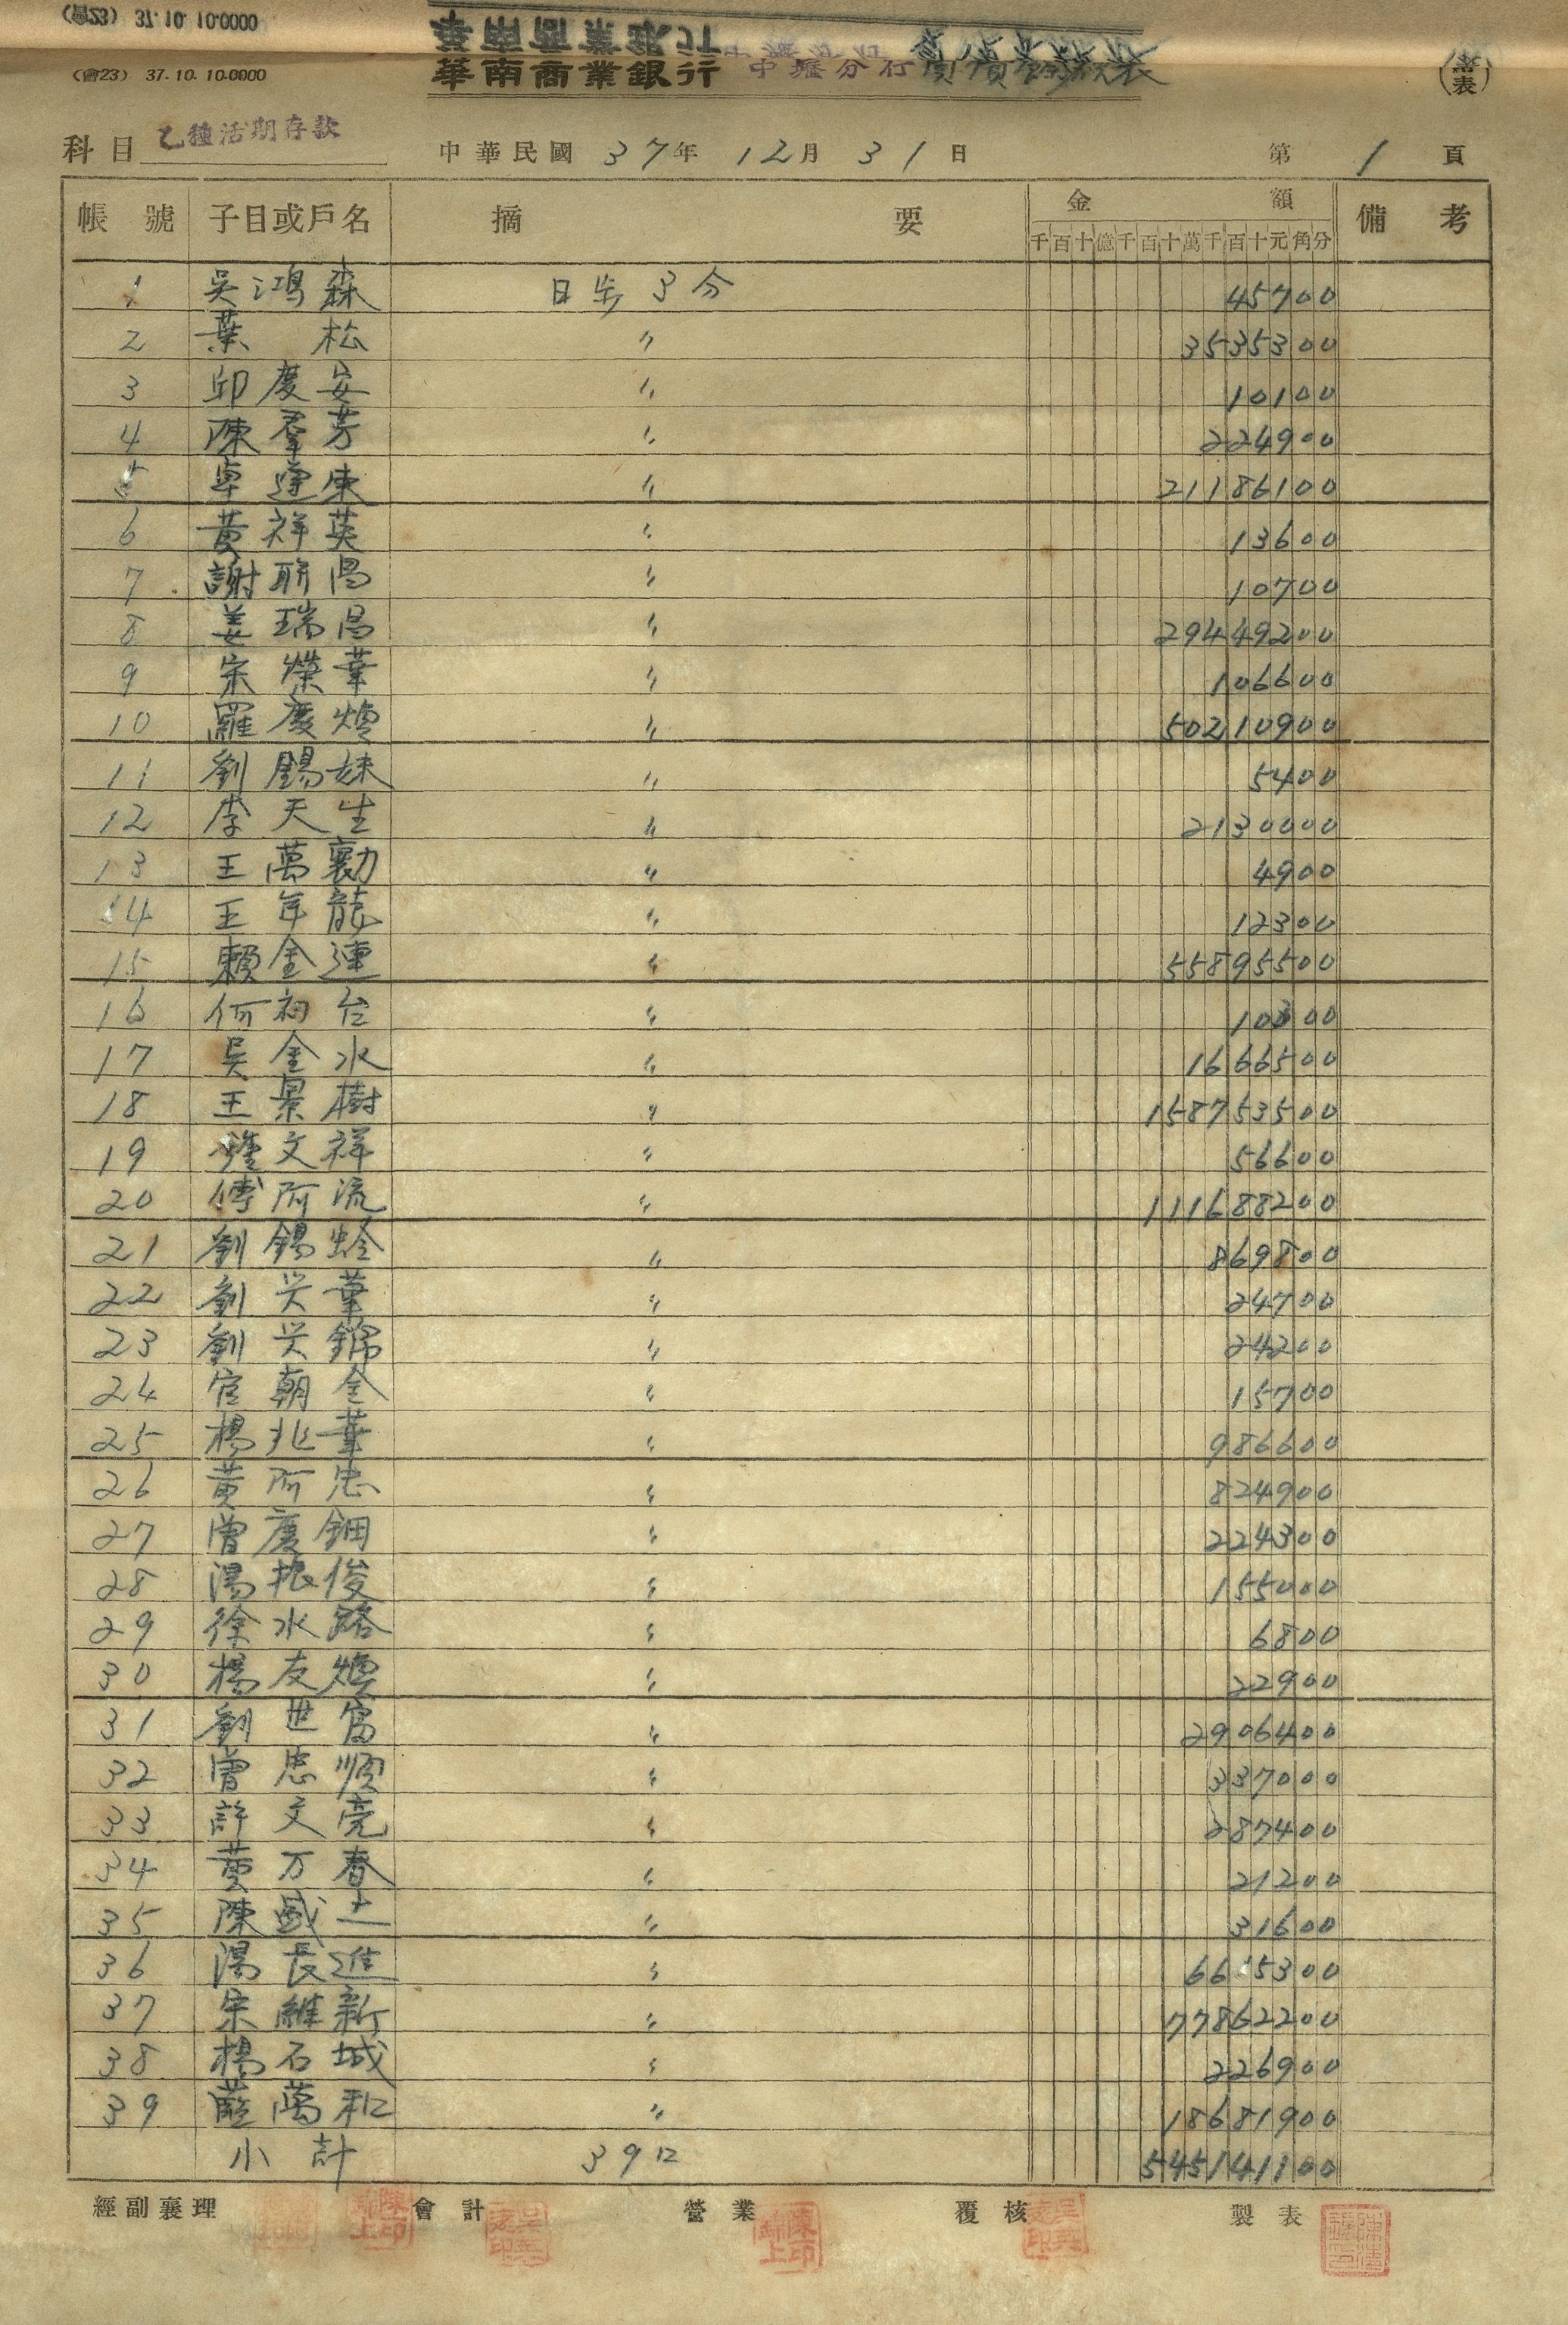 (會23) 37.10.10.0000
華南商業銀行 中壢分行 負債餘額表
科目 乙種活期存款 中華民國 37年 12月 31日 第 1 頁
帳號 子目或戶名 摘要 金額 備考
千百十億千百十萬千百十元角分
1 吳鴻森 日步3分 45700
2 葉松 〃 3535300
3 邱慶安 〃 10100
4 陳羣芳 〃 224900
5 連東 〃 21186100
6 黃祥英 〃 13600
7 謝聯昌 〃 10700
8 姜瑞昌 〃 29449200
9 宋榮華 〃 106600
10 羅慶 〃 50210900
11 劉錫妹 〃 5400
12 李天生 〃 2130000
13 王萬勷 〃 4900
14 王年龍 〃 12300
15 賴金連 〃 55895500
16 何初台 〃 10300
17 吳金水 〃 1666500
18 王景樹 〃 158753500
19 文祥 〃 56600
20 傅阿流 〃 111688200
21 劉錫 〃 869800
22 劉兴葉 〃 24700
23 劉兴錦 〃 24200
24 官朝全 〃 15700
25 楊兆華 〃 986600
26 黃阿忠 〃 824900
27 曾慶鈿 〃 224300
28 湯振俊 〃 155000
29 徐水路 〃 6800
30 楊友煥 〃 22900
31 劉世富 〃 2906400
32 曾忠順 〃 337000
33 許文亮 〃 287400
34 黃万春 〃 21200
35 陳盛土 〃 31600
36 湯長進 〃 6615300
37 宋維新 〃 77862200
38 楊石城 〃 226900
39 藍萬和 〃 18681900
小計 39口 545141100
經副襄理 會計 營業 覆核 製表